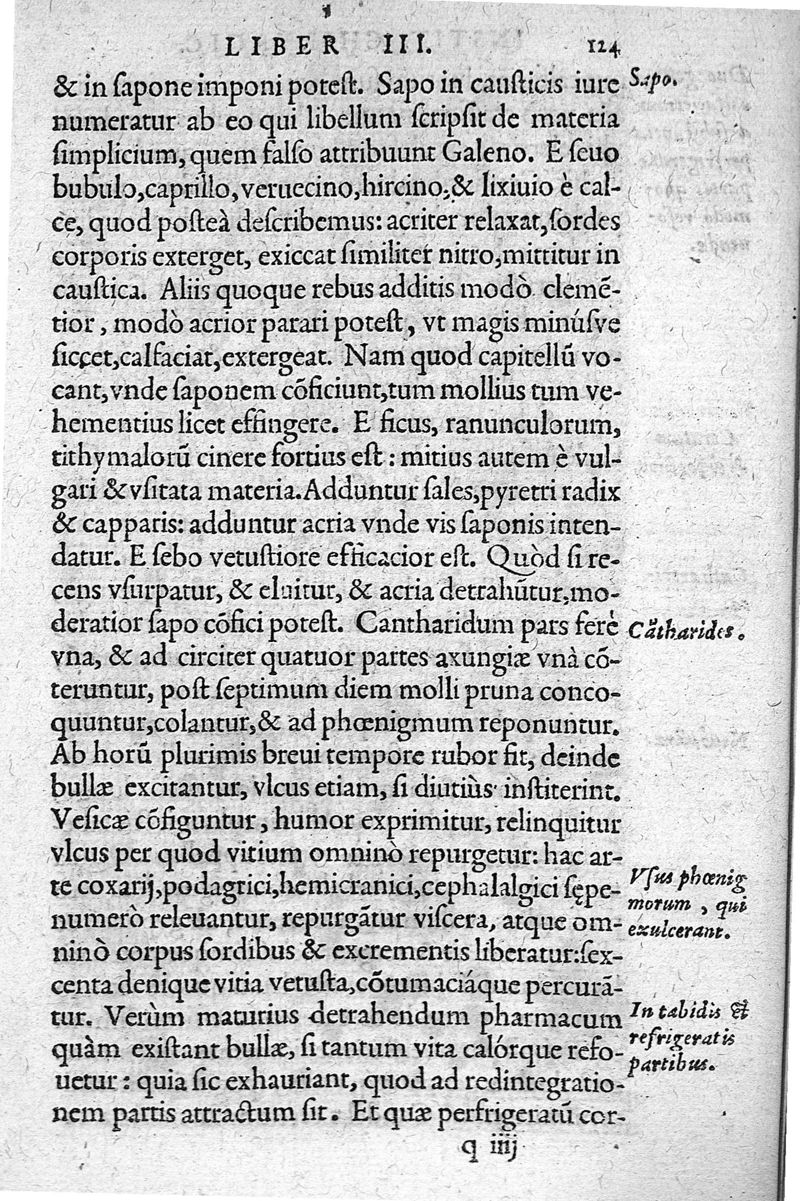 LIBER III. 124
& in ſapone imponi poteſt. Sapo in cauſticis iure
Sapo.
numeratur ab eo qui libellum ſcripſit de materia
ſimplicium, quem falſo attribuunt Galeno. E ſeuo
bubulo, caprillo, veruecino, hircino, & lixiuio è cal-
ce, quod poſteà deſcribemus: acriter relaxat, ſordes
corporis exterget, exiccat ſimiliter nitro, mittitur in
cauſtica. Aliis quoque rebus additis modò clemē-
tior, modò acrior parari poteſt, vt magis minúſve
ſiccet, calfaciat, extergeat. Nam quod capitellū vo-
cant, vnde ſaponem cōficiunt, tum mollius tum ve-
hementius licet effingere. E ficus, ranunculorum,
tithymalorū cinere fortius eſt: mitius autem è vul-
gari & vſitata materia. Adduntur ſales, pyretri radix
& capparis: adduntur acria vnde vis ſaponis inten-
datur. E ſebo vetuſtiore efficacior eſt. Quòd ſi re-
cens vſurpatur, & eluitur, & acria detrahūtur, mo-
deratior ſapo cōfici poteſt. Cantharidum pars ferè
Cātharides.
vna, & ad circiter quatuor partes axungiæ vnà cō-
teruntur, poſt ſeptimum diem molli pruna conco-
quuntur, colantur, & ad phœnigmum reponuntur.
Ab horū plurimis breui tempore rubor fit, deinde
bullæ excitantur, vlcus etiam, ſi diutiùs inſtiterint.
Veſicæ cōfiguntur, humor exprimitur, relinquitur
vlcus per quod vitium omninò repurgetur: hac ar-
te coxarij, podagrici, hemicranici, cephalalgici ſępe-
numerò releuantur, repurgātur viſcera, atque om-
ninò corpus ſordibus & excrementis liberatur: ſex-
Vſus phœnig
morum, qui
exulcerant.
centa denique vitia vetuſta, cōtumaciáque percurā-
tur. Verùm maturius detrahendum pharmacum
quàm exiſtant bullæ, ſi tantum vita calórque refo-
uetur: quia ſic exhauriant, quod ad redintegratio-
In tabidis &
refrigeratis
partibus.
nem partis attractum ſit. Et quæ perfrigeratū cor-
q iiij